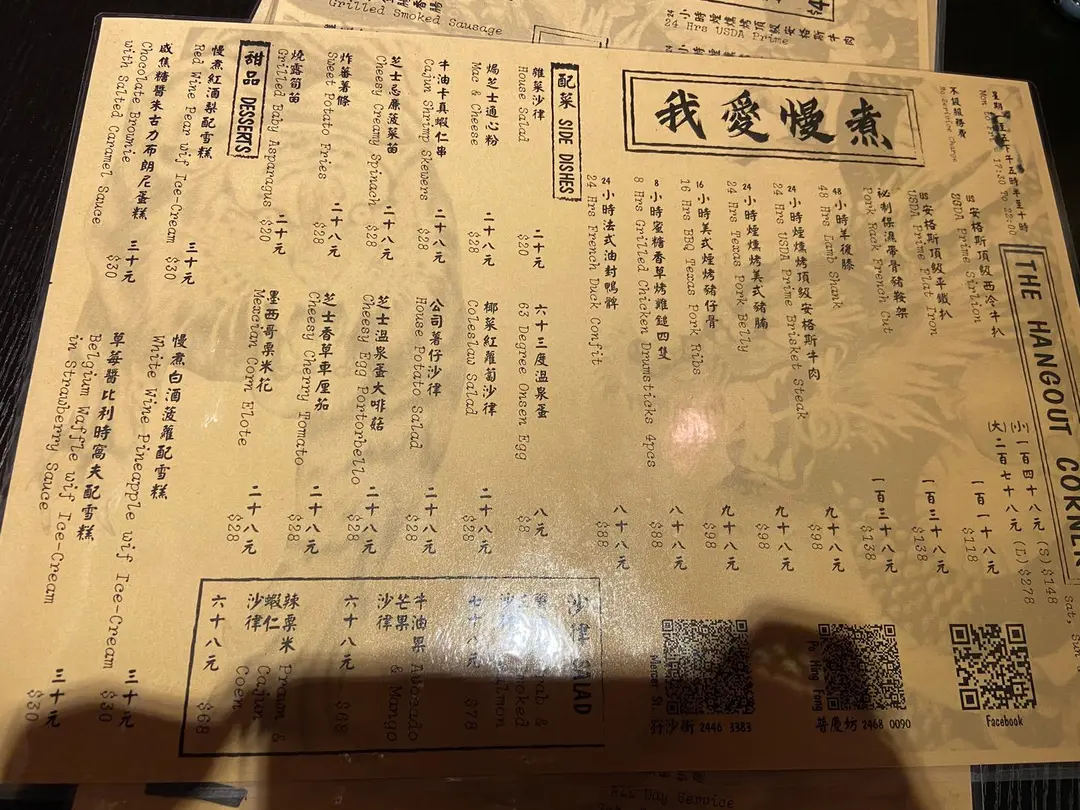 Grilled Smoked Sausage
小時煙燻烤頂級安格斯牛肉
24 Hrs USDA Prime
THE HANGOUT CORNER
我愛慢煮
不設服務費
No Service Charge
(小)一百四十八元 (S)$148
(大)二百七十八元 (L)$278
安格斯頂級西冷牛扒 一百一十八元
USDA Prime Sirlion $118
安格斯頂級平鐵扒 一百三十八元
USDA Prime Flat Iron $138
秘制保濕帶骨豬鞍架 一百三十八元
Pork Rack French Cut $138
48小時羊後膝 九十八元
48 Hrs Lamb Shank $98
24小時煙燻烤頂級安格斯牛肉 九十八元
24 Hrs USDA Prime Brisket Steak $98
24小時煙燻烤美式豬腩 九十八元
24 Hrs Texas Pork Belly $98
16小時美式煙烤豬仔骨 八十八元
16 Hrs BBQ Texas Pork Ribs $88
8小時蜜糖香草烤雞鎚四隻 八十八元
8 Hrs Grilled Chicken Drumsticks 4pcs $88
24小時法式油封鴨髀
24 Hrs French Duck Confit
配菜 SIDE DISHES
雜菜沙律 二十元
House Salad $20
六十三度溫泉蛋 八元
63 Degree Onsen Egg $8
焗芝士通心粉 二十八元
Mac & Cheese $28
椰菜紅蘿蔔沙律 二十八元
Coleslaw Salad $28
牛油卡真蝦仁串 二十八元
Cajun Shrimp Skewers $28
公司薯仔沙律 二十八元
House Potato Salad $28
芝士忌廉菠菜苗 二十八元
Cheesy Creamy Spinach $28
芝士溫泉蛋大啡菇 二十八元
Cheesy Egg Portorbello $28
炸蕃薯條 二十八元
Sweet Potato Fries $28
芝士香草車厘茄 二十八元
Cheesy Cherry Tomato $28
燒露筍苗 二十元
Grilled Baby Asparagus $20
墨西哥粟米花 二十八元
Mexcian Corn Elote $28
甜品 DESSERTS
慢煮紅酒梨配雪糕 三十元
Red Wine Pear wif Ice-Cream $30
慢煮白酒菠蘿配雪糕 三十元
White Wine Pineapple wif Ice-Cream $30
咸焦糖醬朱古力布朗尼蛋糕 三十元
Chocolate Brownie
with Salted Caramel Sauce $30
草莓醬比利時窩夫配雪糕 三十元
Belgium Waffle wif Ice-Cream
in Strawberry Sauce $30
沙律 SALAD
Smoked
沙律
七十八元 $78
牛油果 Avocado
芒果 & Mango
沙律
六十八元 $68
辣粟米 Prawn &
蝦仁 Cajun
沙律 Coen
六十八元 $68
Facebook
Po Hing Fong
普慶坊 2468 0090
Mercer St.
孖沙街 2446 3383
All Day Service